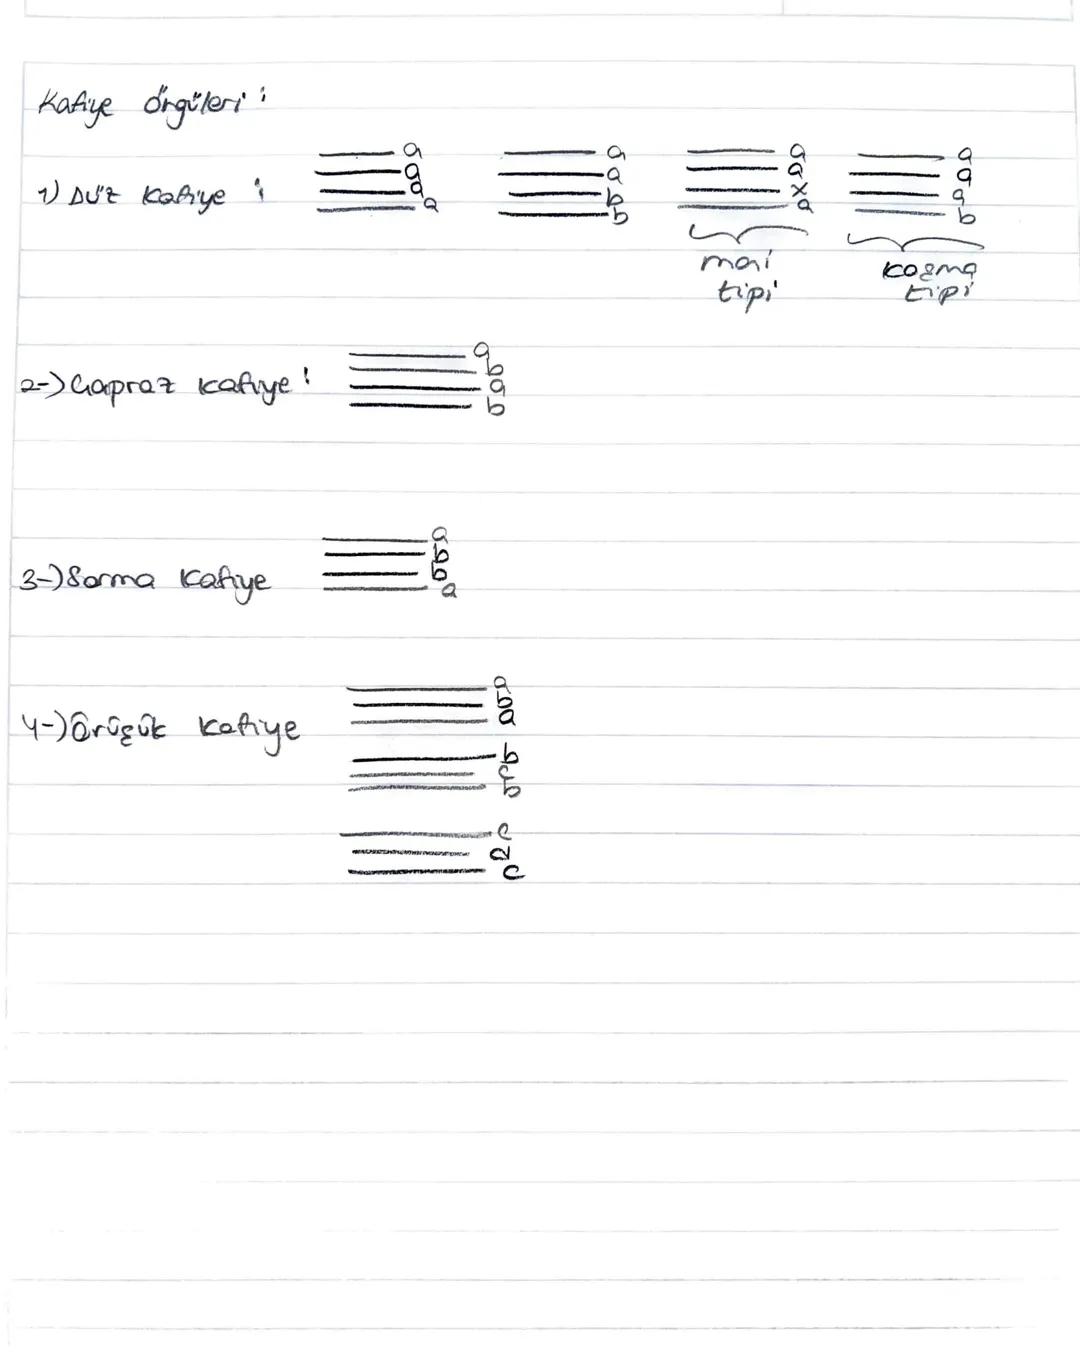 Kafiye örgüleri :
1) Düz Kafiye :
a
a
a
a
a
a
b
b
a
a
x
a
mai
tipi
a
a
a
b
koşma
tipi
2-) Çapraz kafiye :
a
b
a
b
3-) Sarma Kafiye
a
b
b
a
4-) Örüşük Kafiye
a
b
a
b
c
b
c
d
c